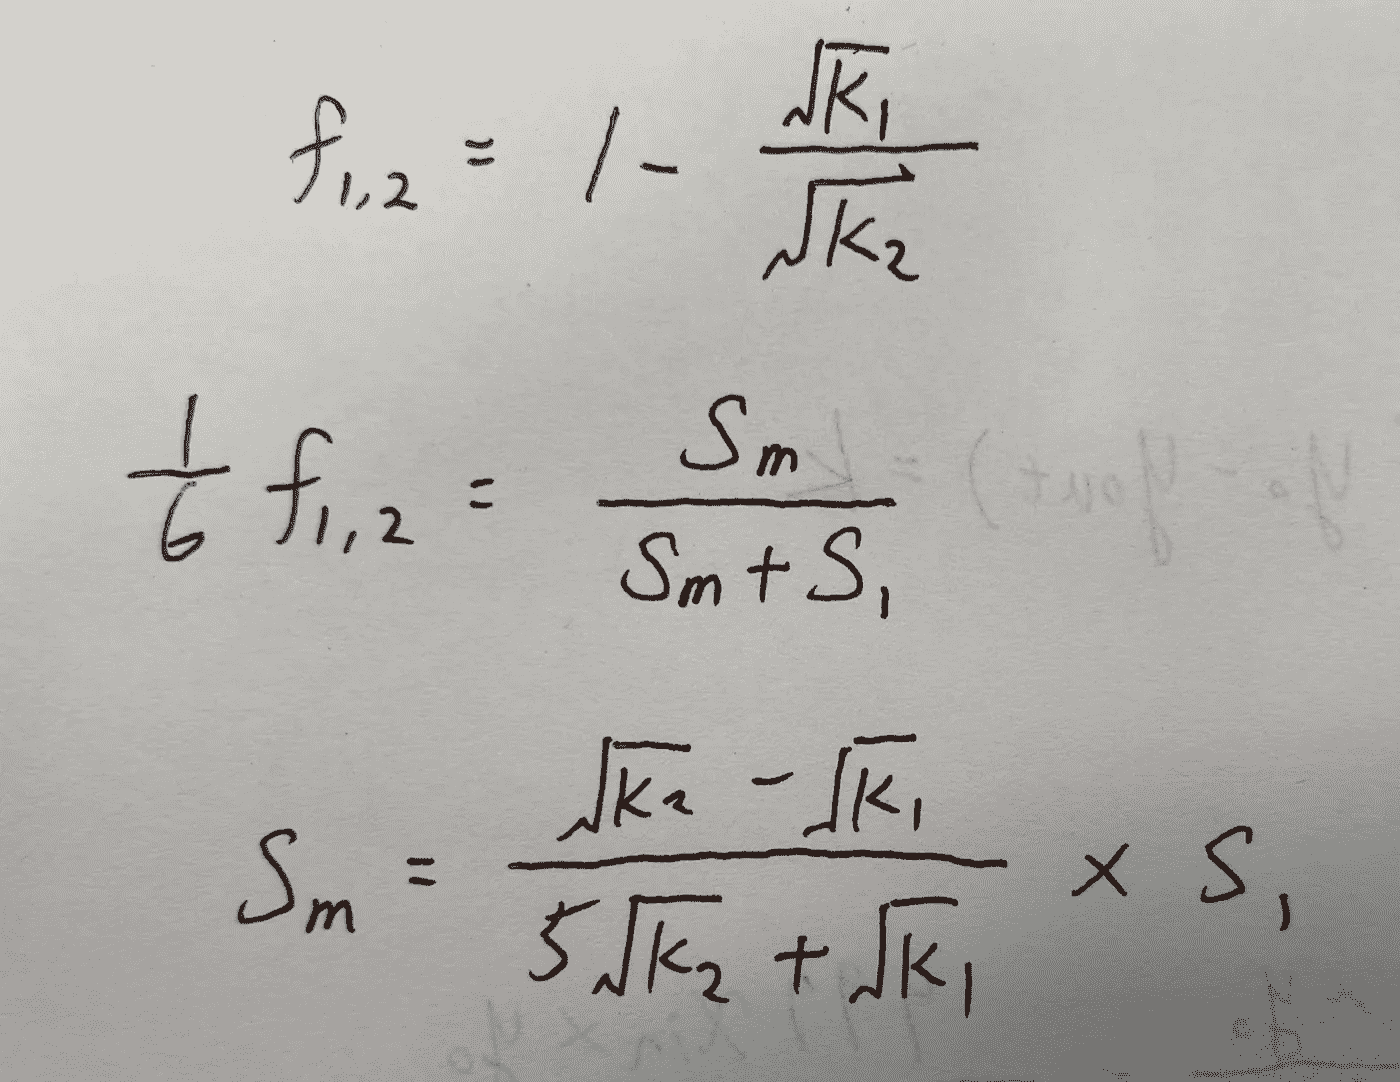 f₁,₂ = 1 - √K₁ / √K₂
1/6 f₁,₂ = Sₘ / (Sₘ + S₁)
Sₘ = (√K₂ - √K₁) / (5√K₂ + √K₁) × S₁